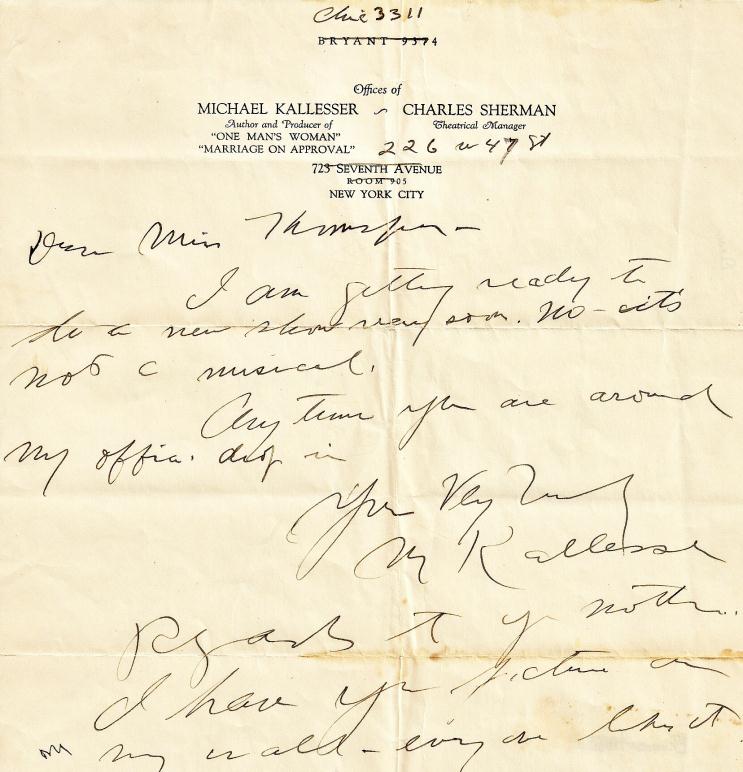 Chic 3311
BRYANT 9374
Offices of
MICHAEL KALLESSER ~ CHARLES SHERMAN
Author and Producer of Theatrical Manager
"ONE MAN'S WOMAN"
"MARRIAGE ON APPROVAL" 226 W 47 St
723 SEVENTH AVENUE
ROOM 905
NEW YORK CITY
Dear Miss Thompson –
I am getting ready to
do a new show very soon. No – it's
not a musical.
Any time you are around
my office drop in
Yours Very Truly
M Kallesser
Regards to your mother.
I have your picture on
my wall – everyone likes it.